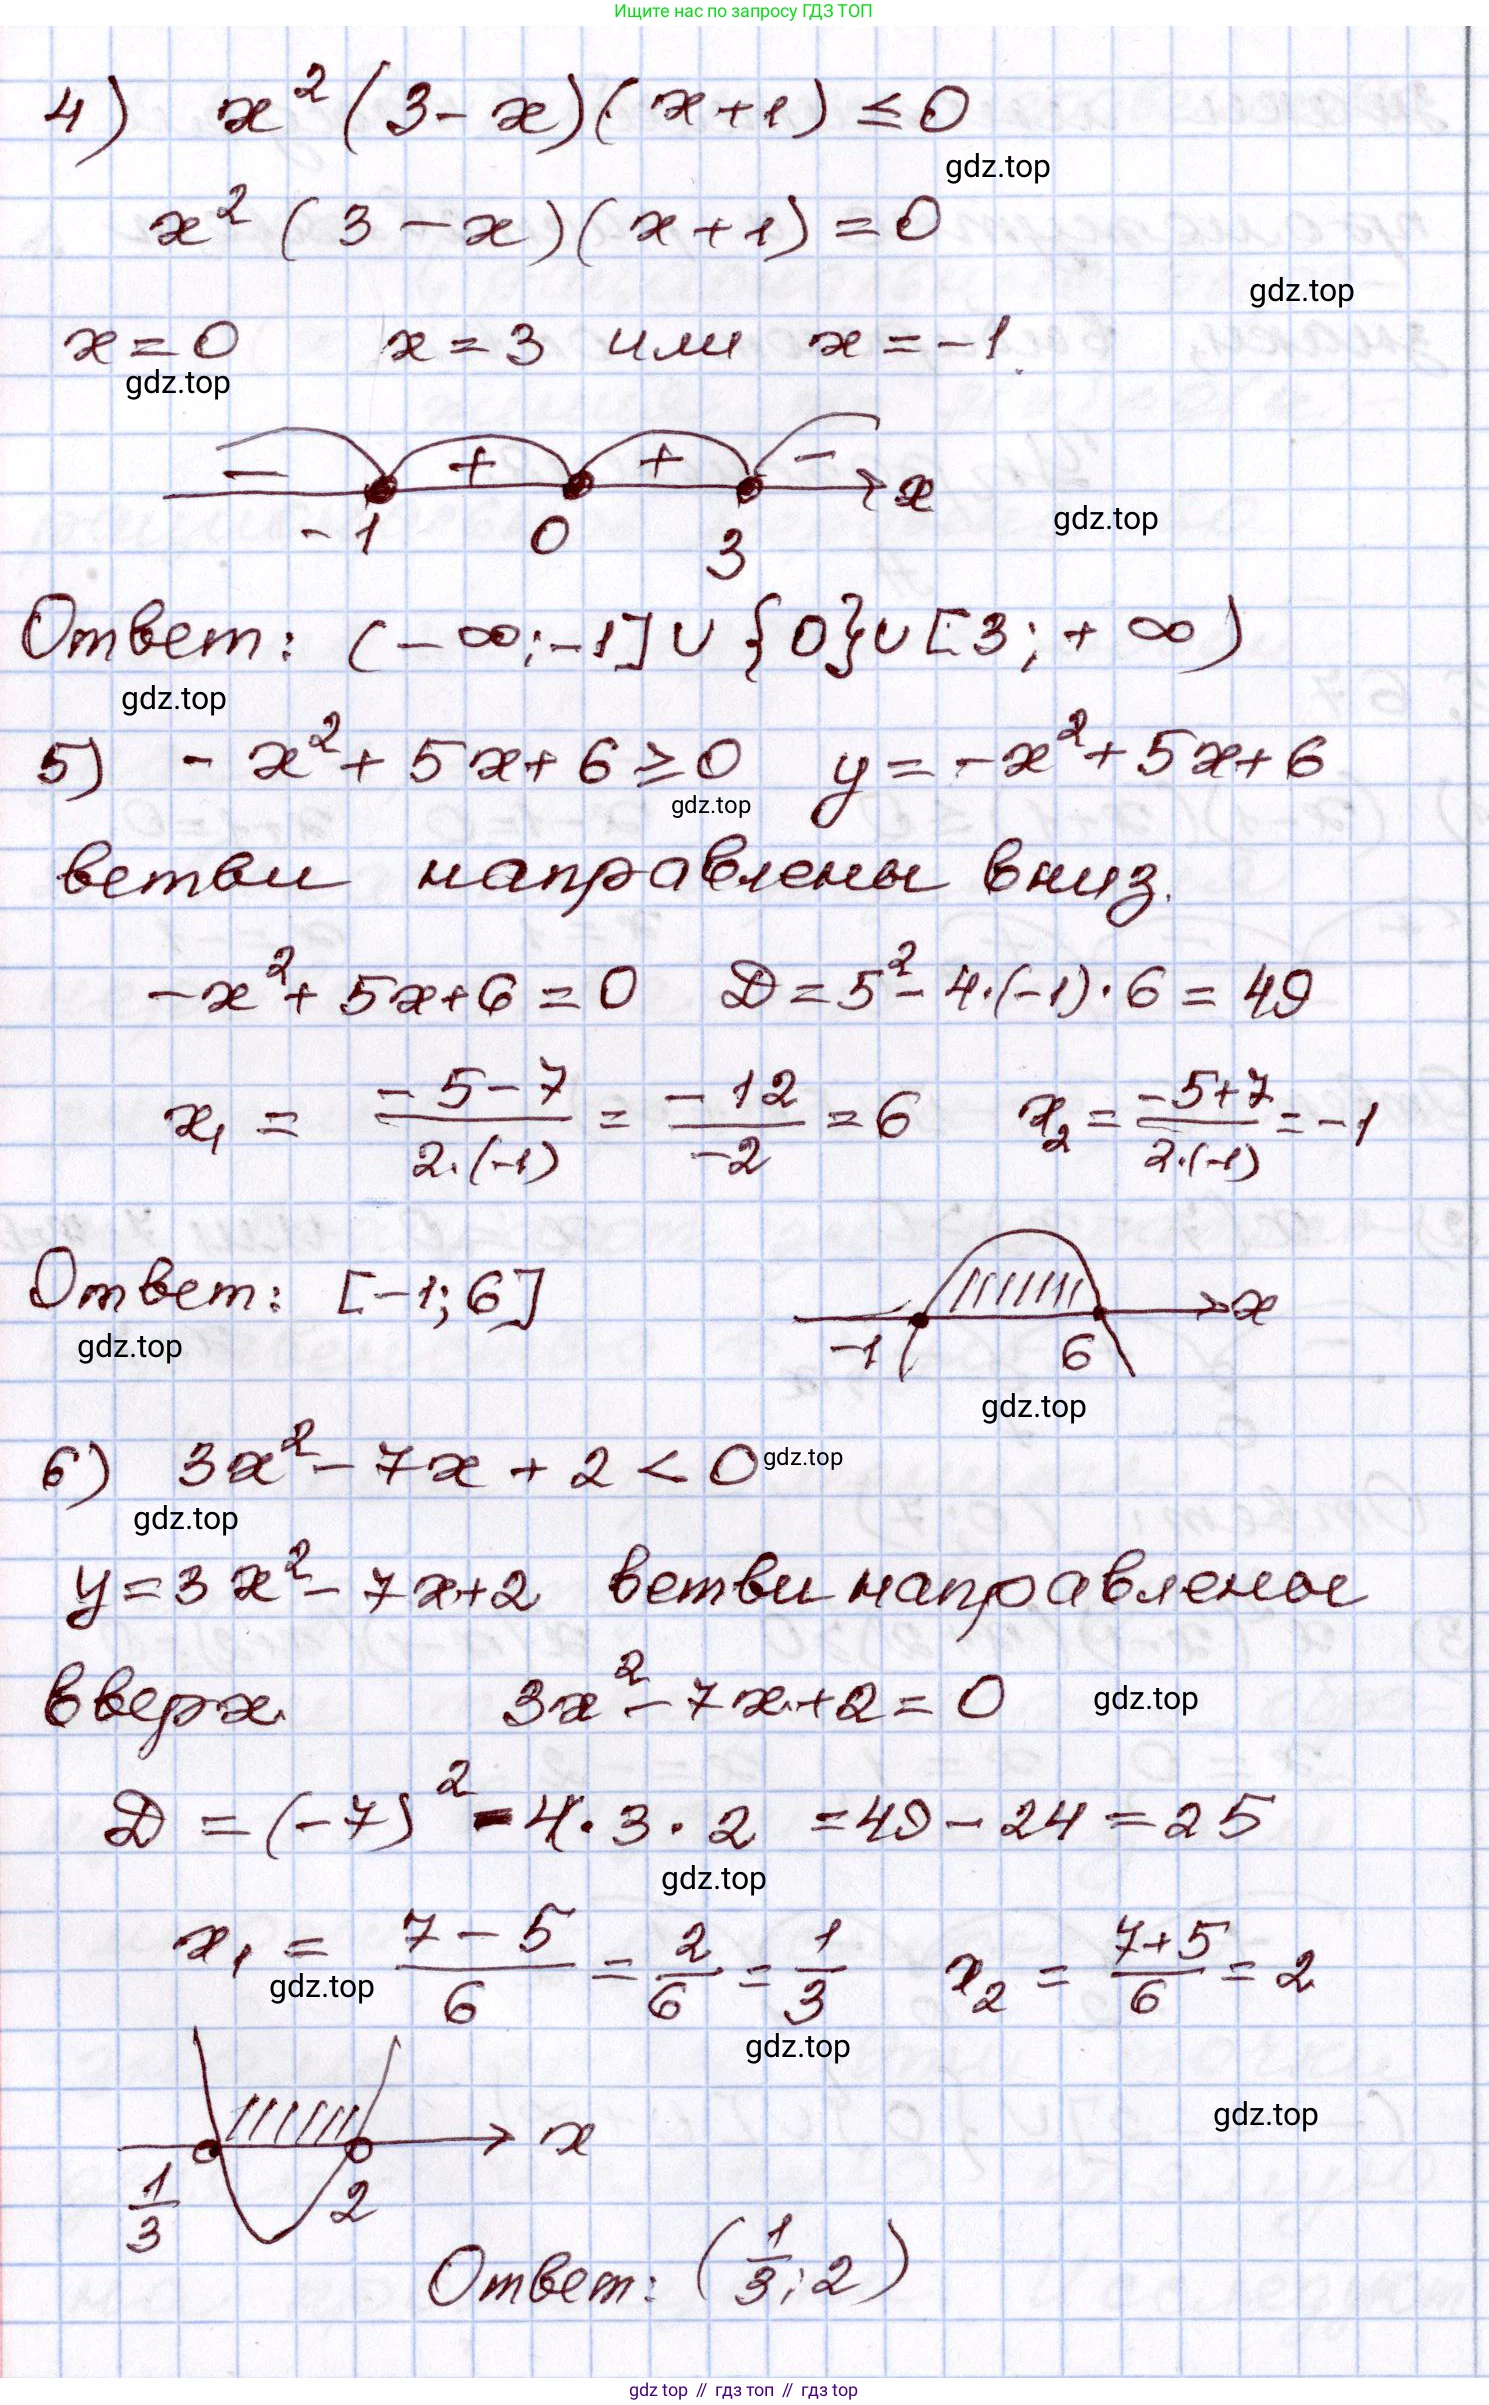 Ищите нас по запросу ГДЗ ТОП
4) x²(3-x)(x+1)≤0
gdz.top
x²(3-x)(x+1)=0
gdz.top
x=0 x=3 или x=-1.
gdz.top
- + + - x
-1 0 3
gdz.top
Ответ: (-∞;-1]∪{0}∪[3;+∞)
gdz.top
5) -x²+5x+6≥0 y=-x²+5x+6
gdz.top
ветви направлены вниз.
-x²+5x+6=0 D=5²-4·(-1)·6=49
x₁ = (-5-7)/(2·(-1)) = (-12)/(-2) = 6 x₂ = (-5+7)/(2·(-1)) = -1
Ответ: [-1;6]
gdz.top
-1 6 x
gdz.top
6) 3x²-7x+2<0 gdz.top
gdz.top
y=3x²-7x+2 ветви направлены
вверх. 3x²-7x+2=0 gdz.top
D=(-7)²-4·3·2=49-24=25
gdz.top
x₁ = (7-5)/6 = 2/6 = 1/3 x₂ = (7+5)/6 = 2
gdz.top
gdz.top
x
gdz.top
1/3 2
Ответ: (1/3;2)
gdz top // гдз топ // гдз top